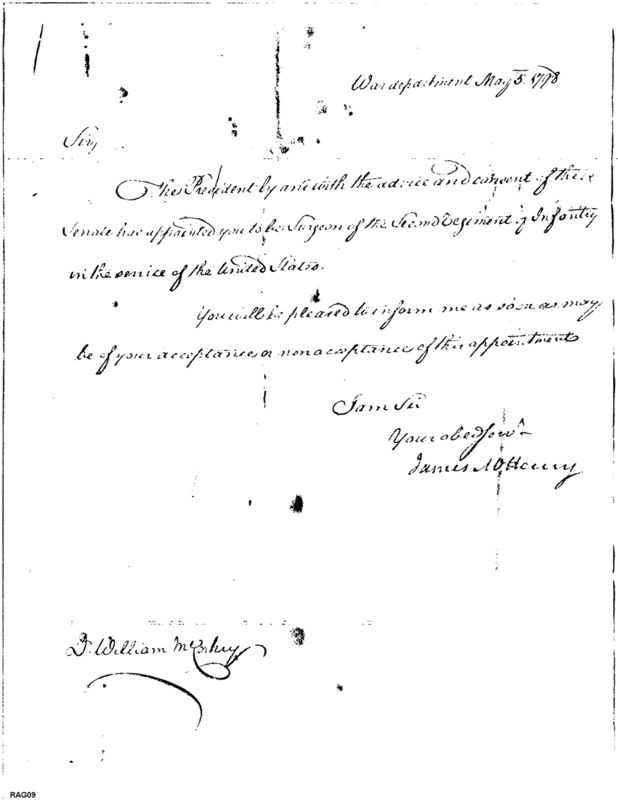 War department May 5. 1798
Sir,
The President by and with the advice and consent of the
Senate has appointed you to be Surgeon of the Second Regiment of Infantry
in the service of the United States.
You will be pleased to inform me as soon as may
be of your acceptance or non acceptance of this appointment
I am Sir
Your obed servt
James McHenry
Dr. William
RAG09